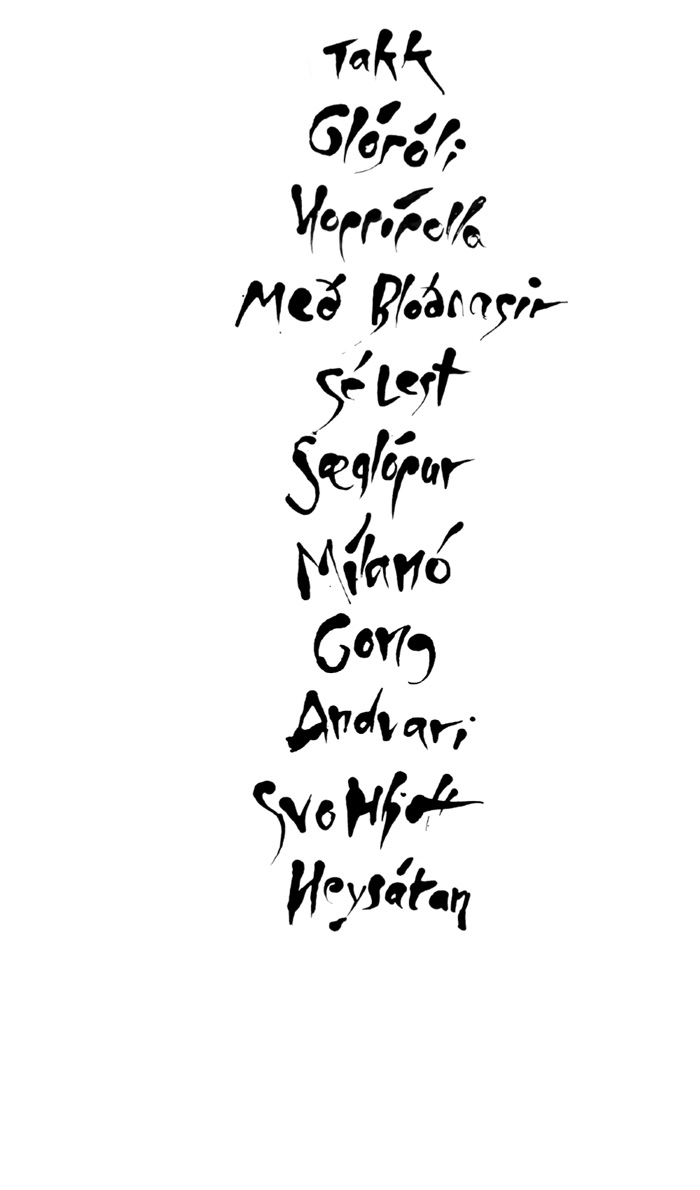 Takk
Glóróli
Hoppípolla
Með Blóðnasir
Sé Lest
Sæglópur
Mílanó
Gong
Andvari
Svo Hljótt
Heysátan